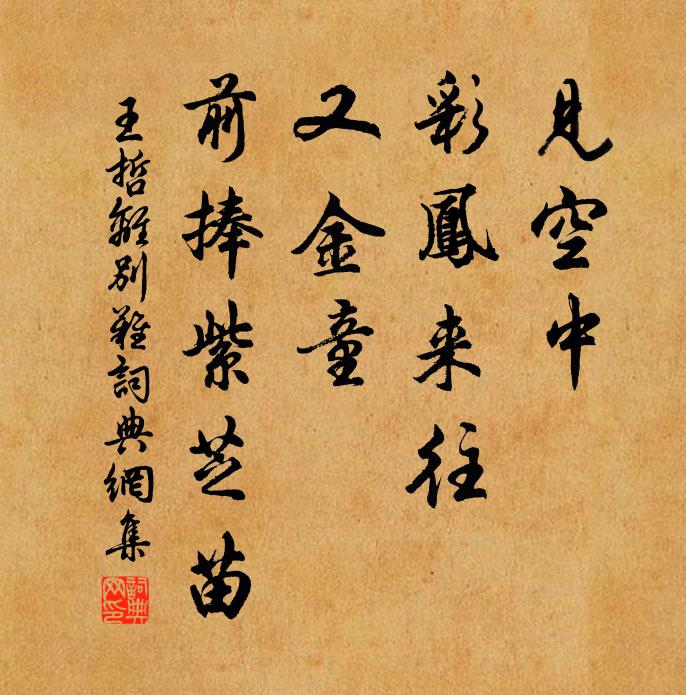 見空中
彩鳳来往
又金童
前捧紫芝苗
王哲離別難詞典網集
詞典網印